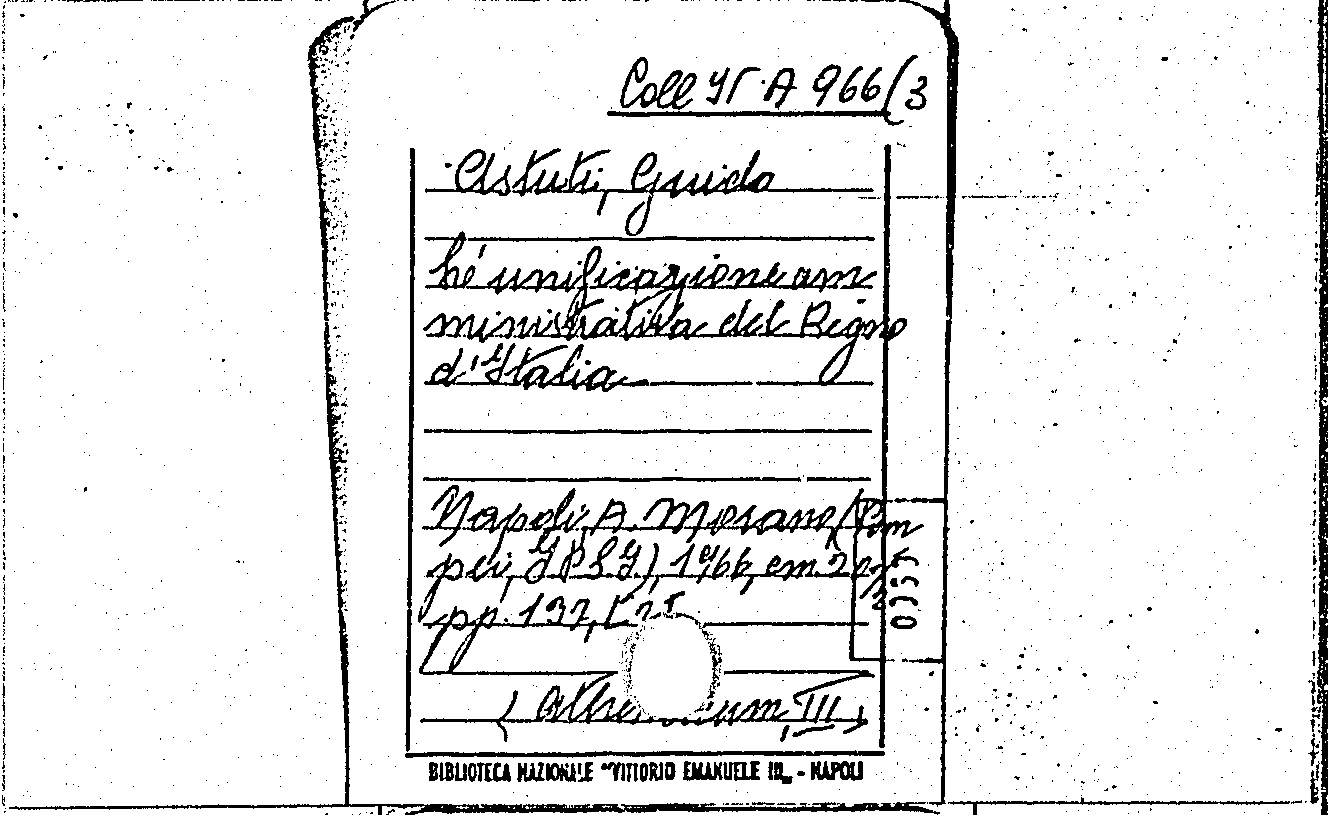 Coll It. A 966/3
Astuti, Guido
L'unificazione am
ministrativa del Regno
d'Italia
Napoli, A. Morano, (Pom
pei, I.P.S.I.), 1966, cm.
pp. 137,
(Athenaeum, III)
0357
BIBLIOTECA NAZIONALE "VITTORIO EMANUELE III" - NAPOLI